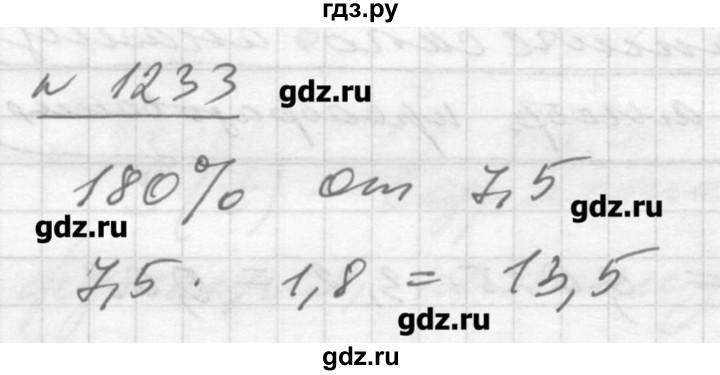 гдз.ру
№ 1233
gdz.ru
180% от 7,5
gdz.ru
gdz.ru
7,5 · 1,8 = 13,5
gdz.ru
gdz.ru